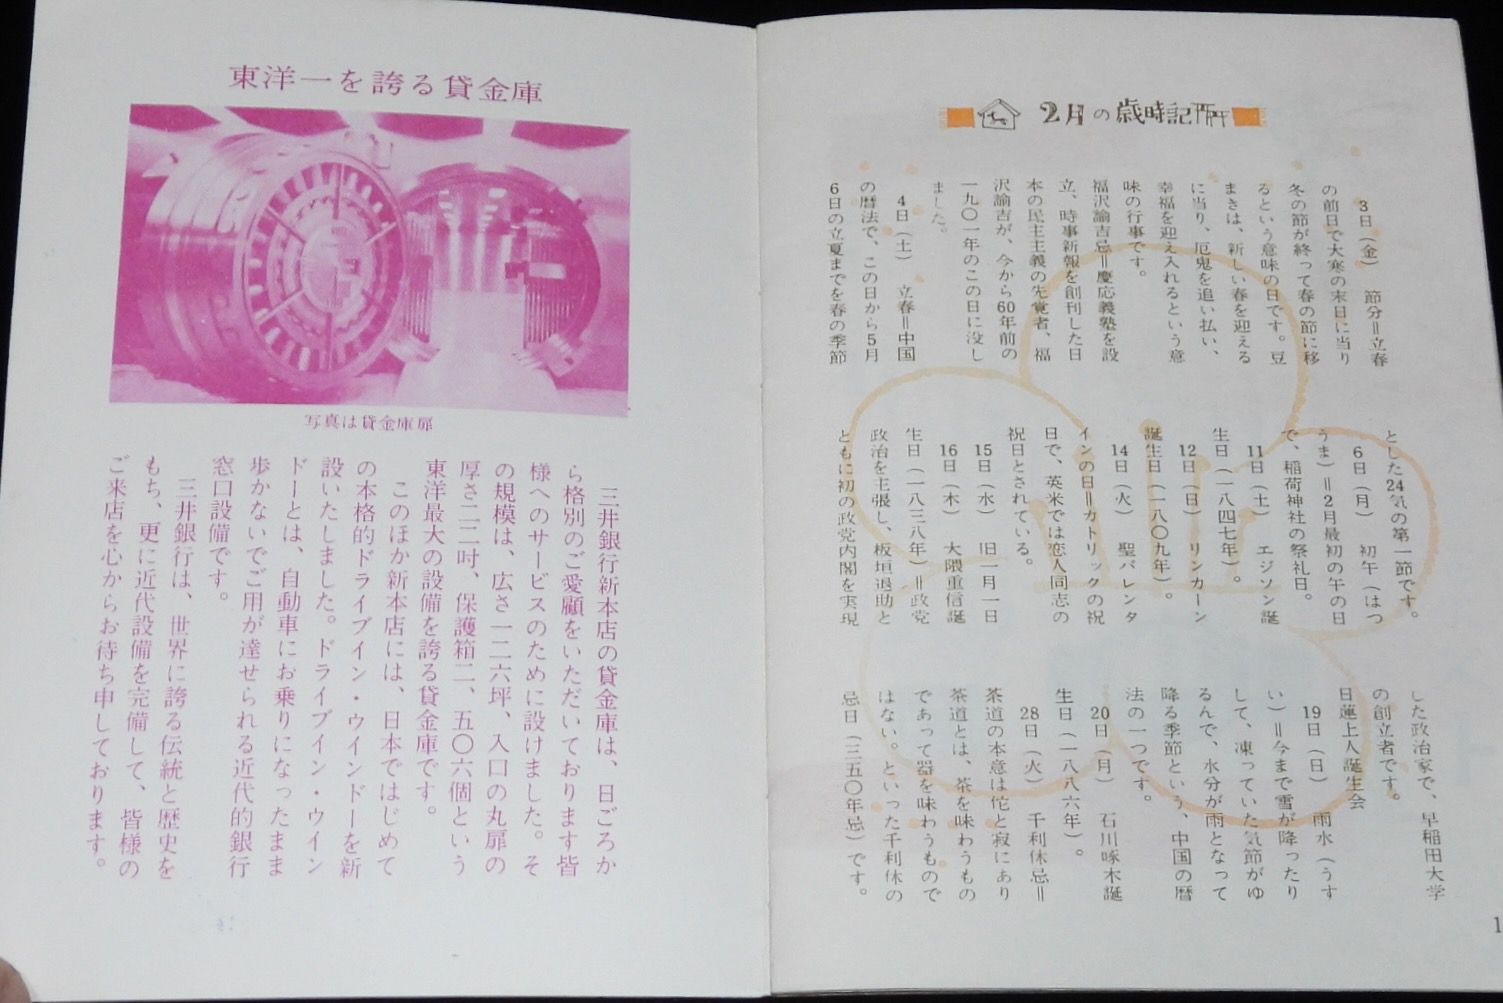 東洋一を誇る貸金庫
写真は貸金庫扉
三井銀行新本店の貸金庫は、日ごろか
ら格別のご愛顧をいただいております皆
様へのサービスのために設けました。そ
の規模は、広さ一二六坪、入口の丸扉の
厚さ二二吋、保護箱二、五〇六個という
東洋最大の設備を誇る貸金庫です。
このほか新本店には、日本ではじめて
の本格的ドライブイン・ウインドーを新
設いたしました。ドライブイン・ウイン
ドーとは、自動車にお乗りになったまま
歩かないでご用が達せられる近代的銀行
窓口設備です。
三井銀行は、世界に誇る伝統と歴史を
もち、更に近代設備を完備して、皆様の
ご来店を心からお待ち申しております。
2月の歳時記
3日（金）　節分＝立春
の前日で大寒の末日に当り
冬の節が終って春の節に移
るという意味の日です。豆
まきは、新しい春を迎える
に当り、厄鬼を追い払い、
幸福を迎え入れるという意
味の行事です。
福沢諭吉忌＝慶応義塾を設
立、時事新報を創刊した日
本の民主主義の先覚者、福
沢諭吉が、今から60年前の
一九〇一年のこの日に没し
ました。
4日（土）　立春＝中国
の暦法で、この日から5月
6日の立夏までを春の季節
とした24気の第一節です。
6日（月）　初午（はつ
うま）＝2月最初の午の日
で、稲荷神社の祭礼日。
11日（土）　エジソン誕
生日（一八四七年）。
12日（日）　リンカーン
誕生日（一八〇九年）。
14日（火）　聖バレンタ
インの日＝カトリックの祝
日で、英米では恋人同志の
祝日とされている。
15日（水）　旧一月一日
16日（木）　大隈重信誕
生日（一八三八年）＝政党
政治を主張し、板垣退助と
ともに初の政党内閣を実現
した政治家で、早稲田大学
の創立者です。
日蓮上人誕生会
19日（日）　雨水（うす
い）＝今まで雪が降ったり
して、凍っていた気節がゆ
るんで、水分が雨となって
降る季節という、中国の暦
法の一つです。
20日（月）　石川啄木誕
生日（一八八六年）。
28日（火）　千利休忌＝
茶道の本意は佗と寂にあり
茶道とは、茶を味わうもの
であって器を味わうもので
はない。といった千利休の
忌日（三五〇年忌）です。
1